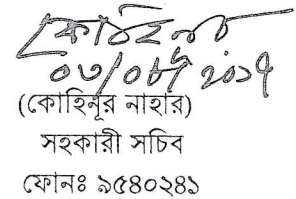 ০৩/০৮/২০১৭
(কোহিনূর নাহার)
সহকারী সচিব
ফোনঃ ৯৫৪০২৪১